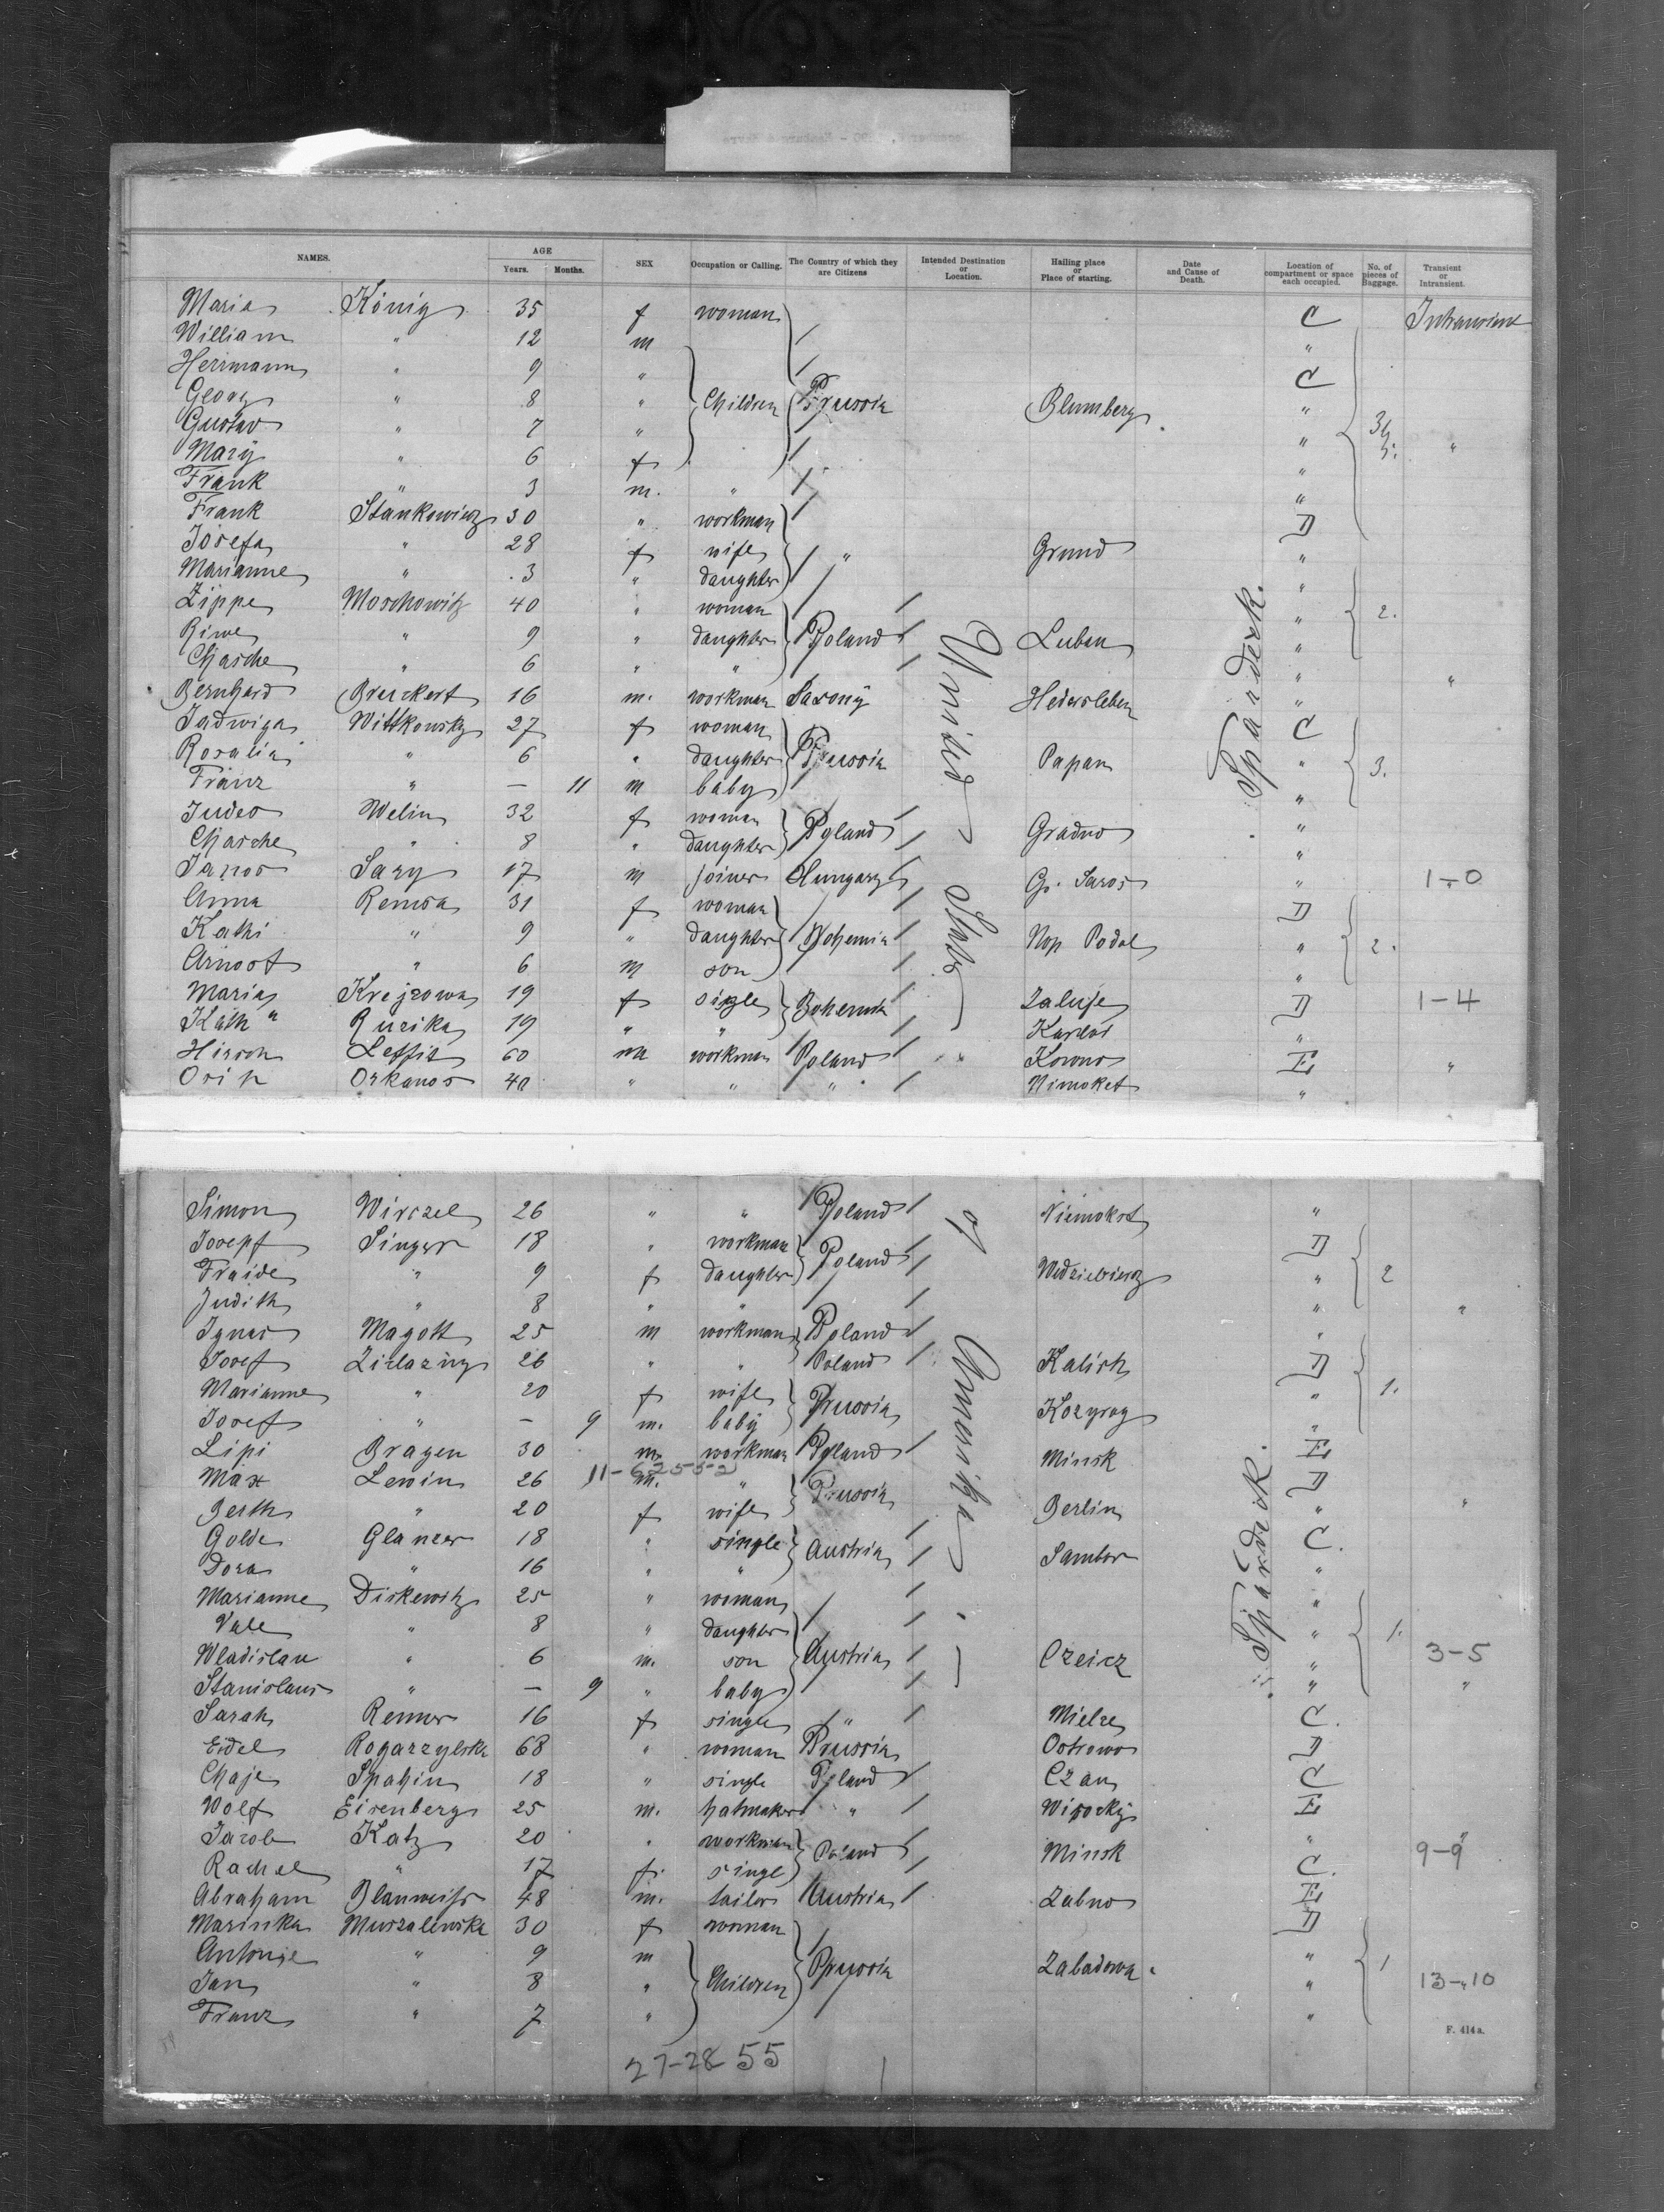 NAMES. AGE Years. Months. SEX Occupation or Calling. The Country of which they are Citizens Intended Destination or Location. Hailing place or Place of starting. Date and Cause of Death. Location of compartment or space each occupied. No. of pieces of Baggage. Transient or Intransient.
Maria König 35 f woman C Intransient
William " 12 m "
Herrmann " 9 " C
Georg " 8 " Children Prussia Blumberg "
Gustav " 7 " " "
Mary " 6 f "
Frank " 3 m. " "
Frank Stankewicz 30 " workman D
Josefa " 28 f wife " Grund "
Marianne " 3 " daughter "
Zippe Moschowitz 40 " woman " 2.
Riwe " 9 " daughter Poland Luban "
Chasche " 6 " " " "
Bernhard 16 m. workman Saxony Hedersleben "
Jadwiga Wittkowsky 27 f woman C
Rosalia " 6 " daughter Prussia Papau " 3.
Franz " — 11 m baby "
Welin 32 f woman Poland Gradno "
Chasche " 8 " daughter "
Janos Sary 17 m joiner Hungary Saros " 1-0
Anna Remsa 31 f woman D
Kathi " 9 " daughter Bohemia Podol " 2.
Arnost " 6 m son "
Maria Krejzowa 19 f single Bohemia Zaluje D 1-4
Kath " Ruzika 19 " " "
Hirsch 60 m workman Poland " Kowno E "
Osip Orkanos 40 " " " Nimoket "
United States
Spardeck.
Simon Wirczel 26 " " Poland "
Josepf Singer 18 " workman Poland D
Fraide " 9 f daughter " 2
Judith " 8 " " " "
Ignas Magott 25 m workman Poland "
Josef 26 " " Poland Kalish D
Marianne " 20 f wife Prussia " 1.
Josef " — 9 m. baby "
Lipi Bragen 30 m. workman Poland Minsk E
Max Lewin 26 m. " Prussia D
Berth " 20 f wife Berlin " "
Golde Glanzer 18 " single Austria C.
Dora " 16 " " Sambor "
Marianne Diskewitz 25 " woman "
Vale " 8 " daughter " 1.
Wladislau " 6 m. son Austria Czeicz " 3-5
Stanislaus " — 9 " baby " "
Sarah Renner 16 f single " Mielze C.
Eidel 68 " woman Prussia Ostrowo D
Chaje Spahin 18 " single Poland Czan C
Wolf Eisenberg 25 m. hatmaker " E
Jacob Katz 20 " workman Poland Minsk " 9-9
Rachel " 17 f. single C.
Abraham Blauweiss 48 m. tailor Austria Zabno E
Marinka Murzalewska 30 f woman D
Antonie " 9 m Prussia Zabadowa " 1
Jan " 8 " Children " 13-10
Franz " 7 " "
of America
Spardeck.
F. 414a.
27-28 55